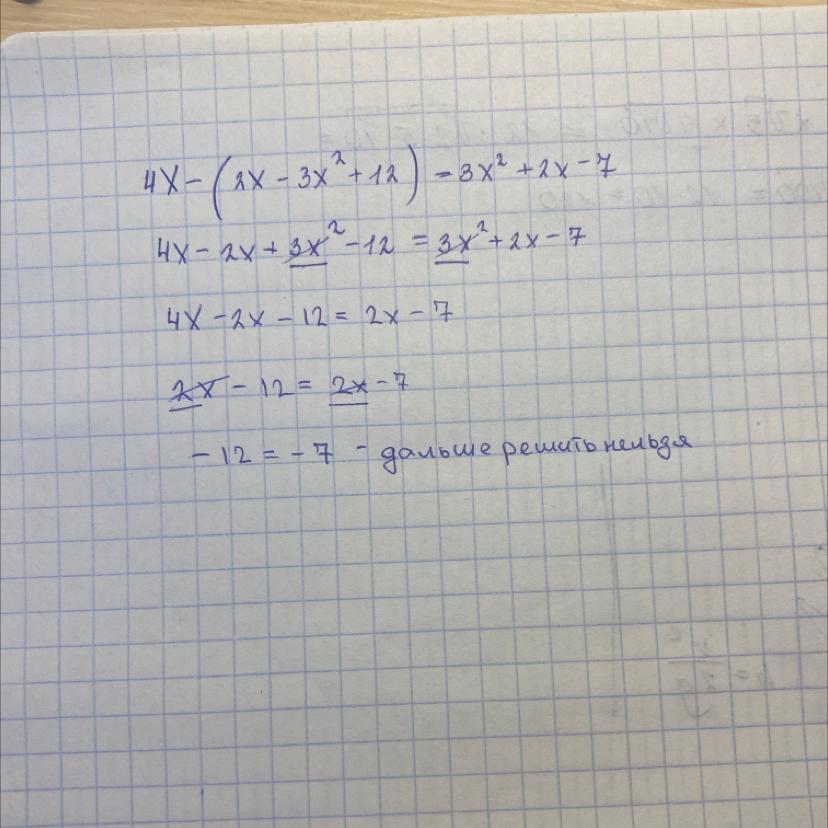 4x - (2x - 3x² + 12) = 3x² + 2x - 7
4x - 2x + 3x² - 12 = 3x² + 2x - 7
4x - 2x - 12 = 2x - 7
2x - 12 = 2x - 7
-12 = -7 - дальше решить нельзя